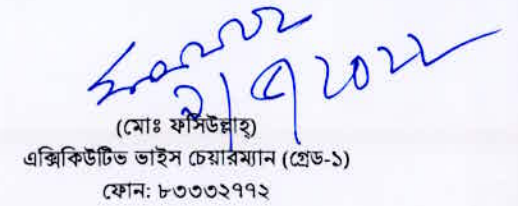 (মোঃ ফসিউল্লাহ্)
এক্সিকিউটিভ ভাইস চেয়ারম্যান (গ্রেড-১)
ফোন: ৮৩৩৩২৭৭২